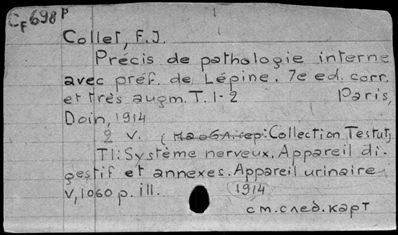 CF698P
Collet, F.J.
Précis de pathologie interne
avec préf. de Lépine. 7e ed. corr.
et très augm. T.1-2 Paris,
Doin, 1914
2 v. (Collection Testut)
T1: Système nerveux. Appareil di-
gestif et annexes. Appareil urinaire
V, 1060 p. ill. 1914
см. след. карт